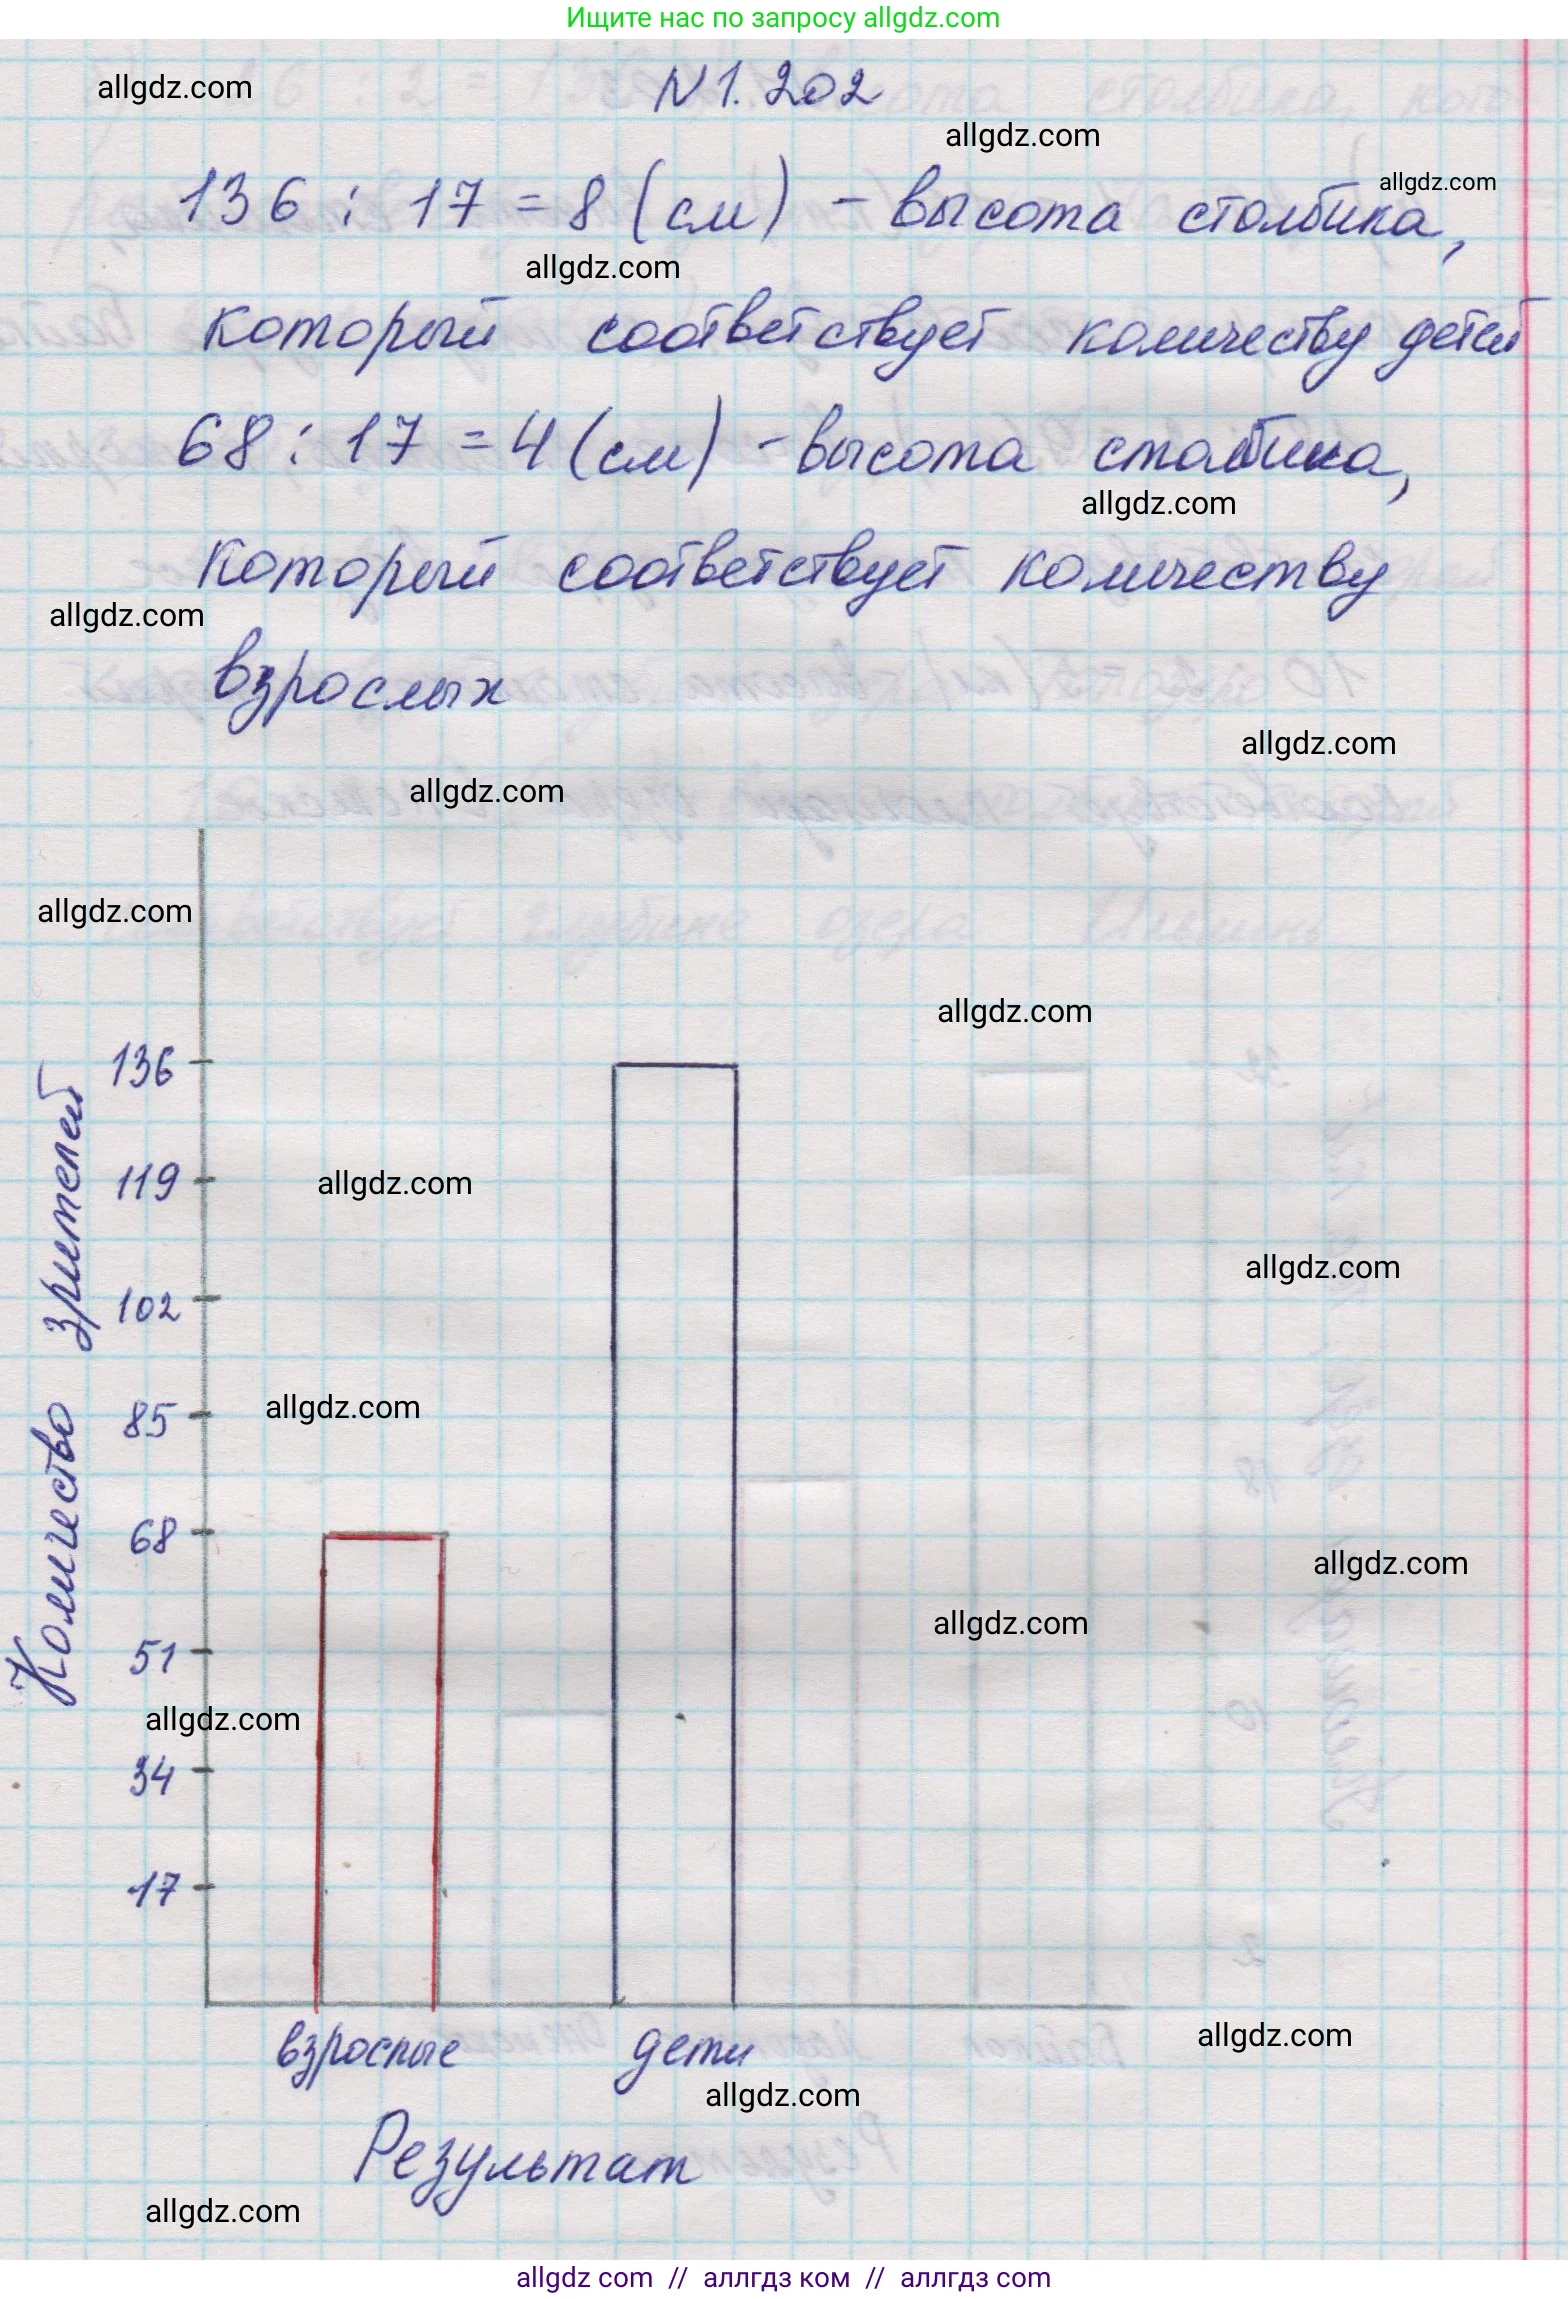 Ищите нас по запросу allgdz.com
allgdz.com
N 1. 202
allgdz.com
allgdz.com
136 : 17 = 8 (см) - высота столбика,
allgdz.com
который соответствует количеству детей
68 : 17 = 4 (см) - высота столбика,
allgdz.com
который соответствует количеству
allgdz.com
взрослых
allgdz.com
allgdz.com
allgdz.com
allgdz.com
Количество зрителей
136
119
allgdz.com
allgdz.com
102
85
allgdz.com
68
allgdz.com
allgdz.com
51
allgdz.com
34
17
взрослые дети
allgdz.com
allgdz.com
Результат
allgdz.com
allgdz com // аллгдз ком // аллгдз com